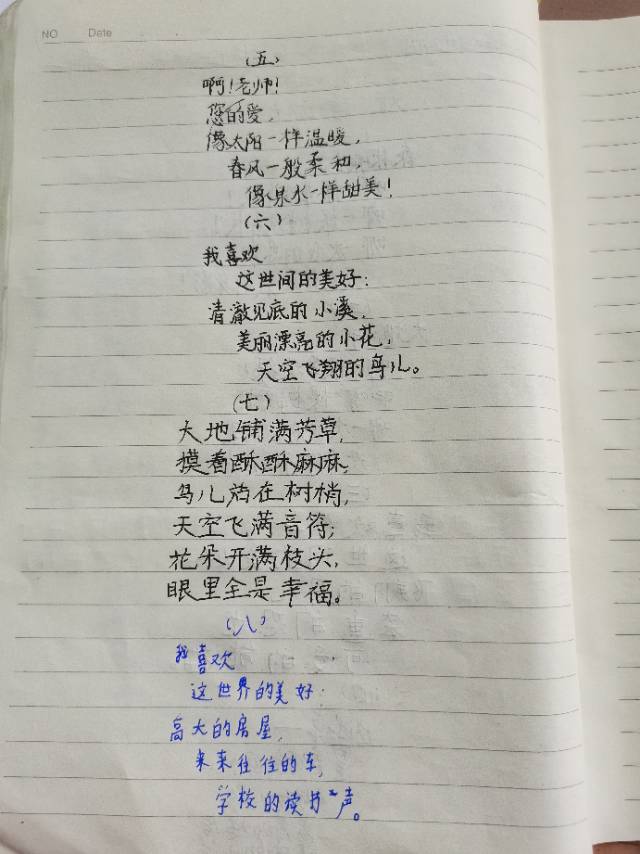 NO Date
（五）
啊！老师！
您的爱，
像太阳一样温暖，
春风一般柔和，
像泉水一样甜美！
（六）
我喜欢
这世间的美好：
清澈见底的小溪，
美丽漂亮的小花，
天空飞翔的鸟儿。
（七）
大地铺满芳草，
摸着酥酥麻麻，
鸟儿站在树梢，
天空飞满音符；
花朵开满枝头，
眼里全是幸福。
（八）
我喜欢
这世界的美好：
高大的房屋，
来来往往的车，
学校的读书声。